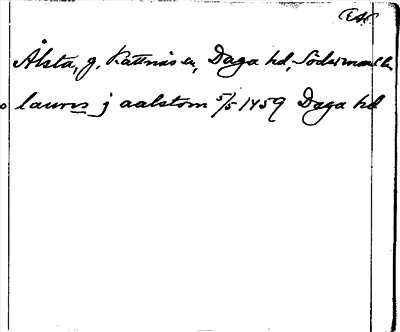 Ålsta, g. Kattnäs sn, Daga hd, Södermanl. l.
laur̲is̲ j aalstom 5/5 1459 Daga hd